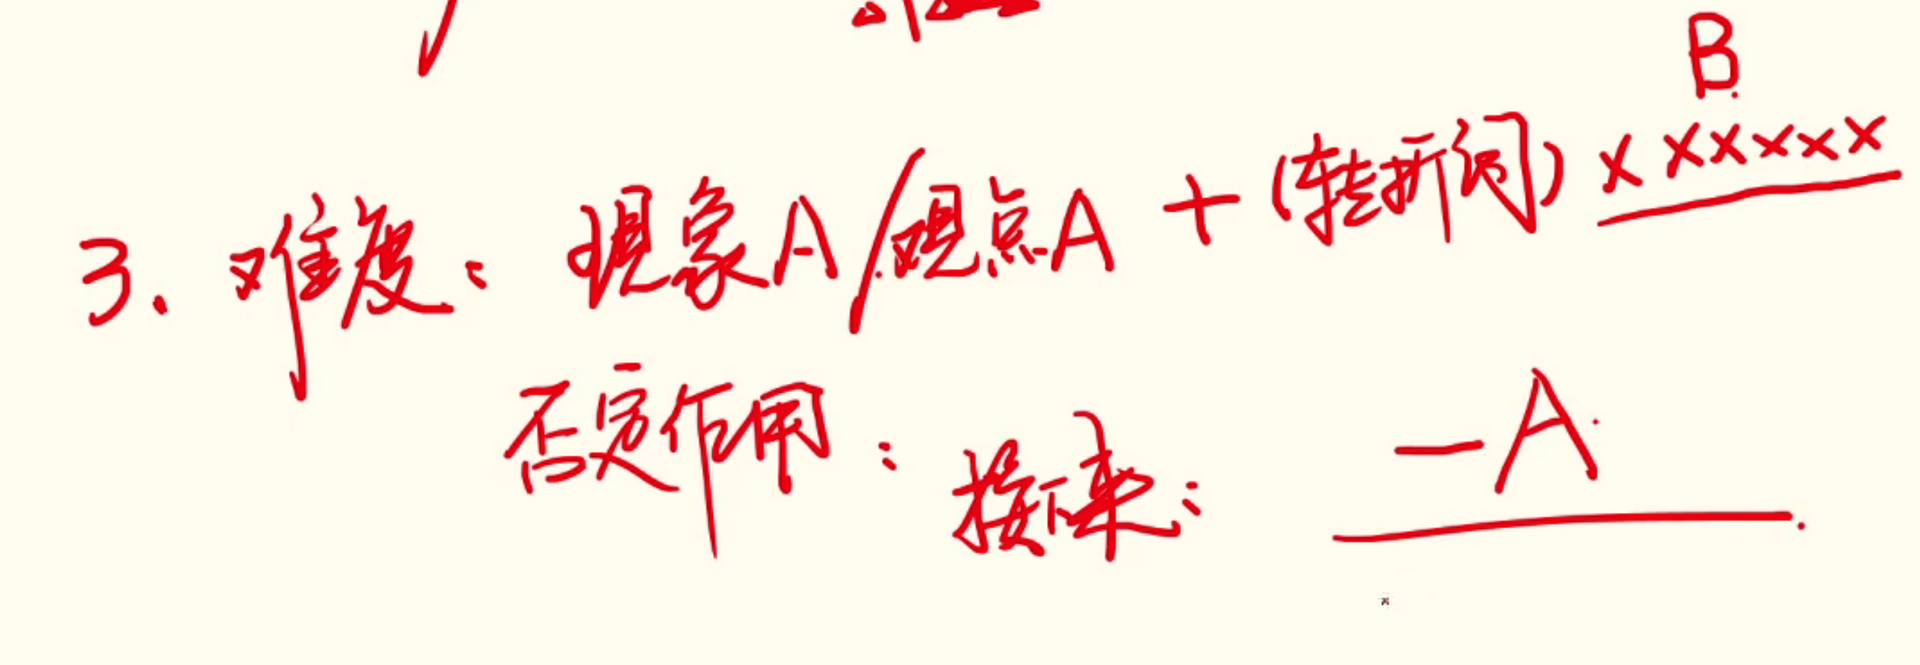 B
3. 难度: 现象A/观点A + (转折词) xxxxxx
否定作用: 接下来: -A